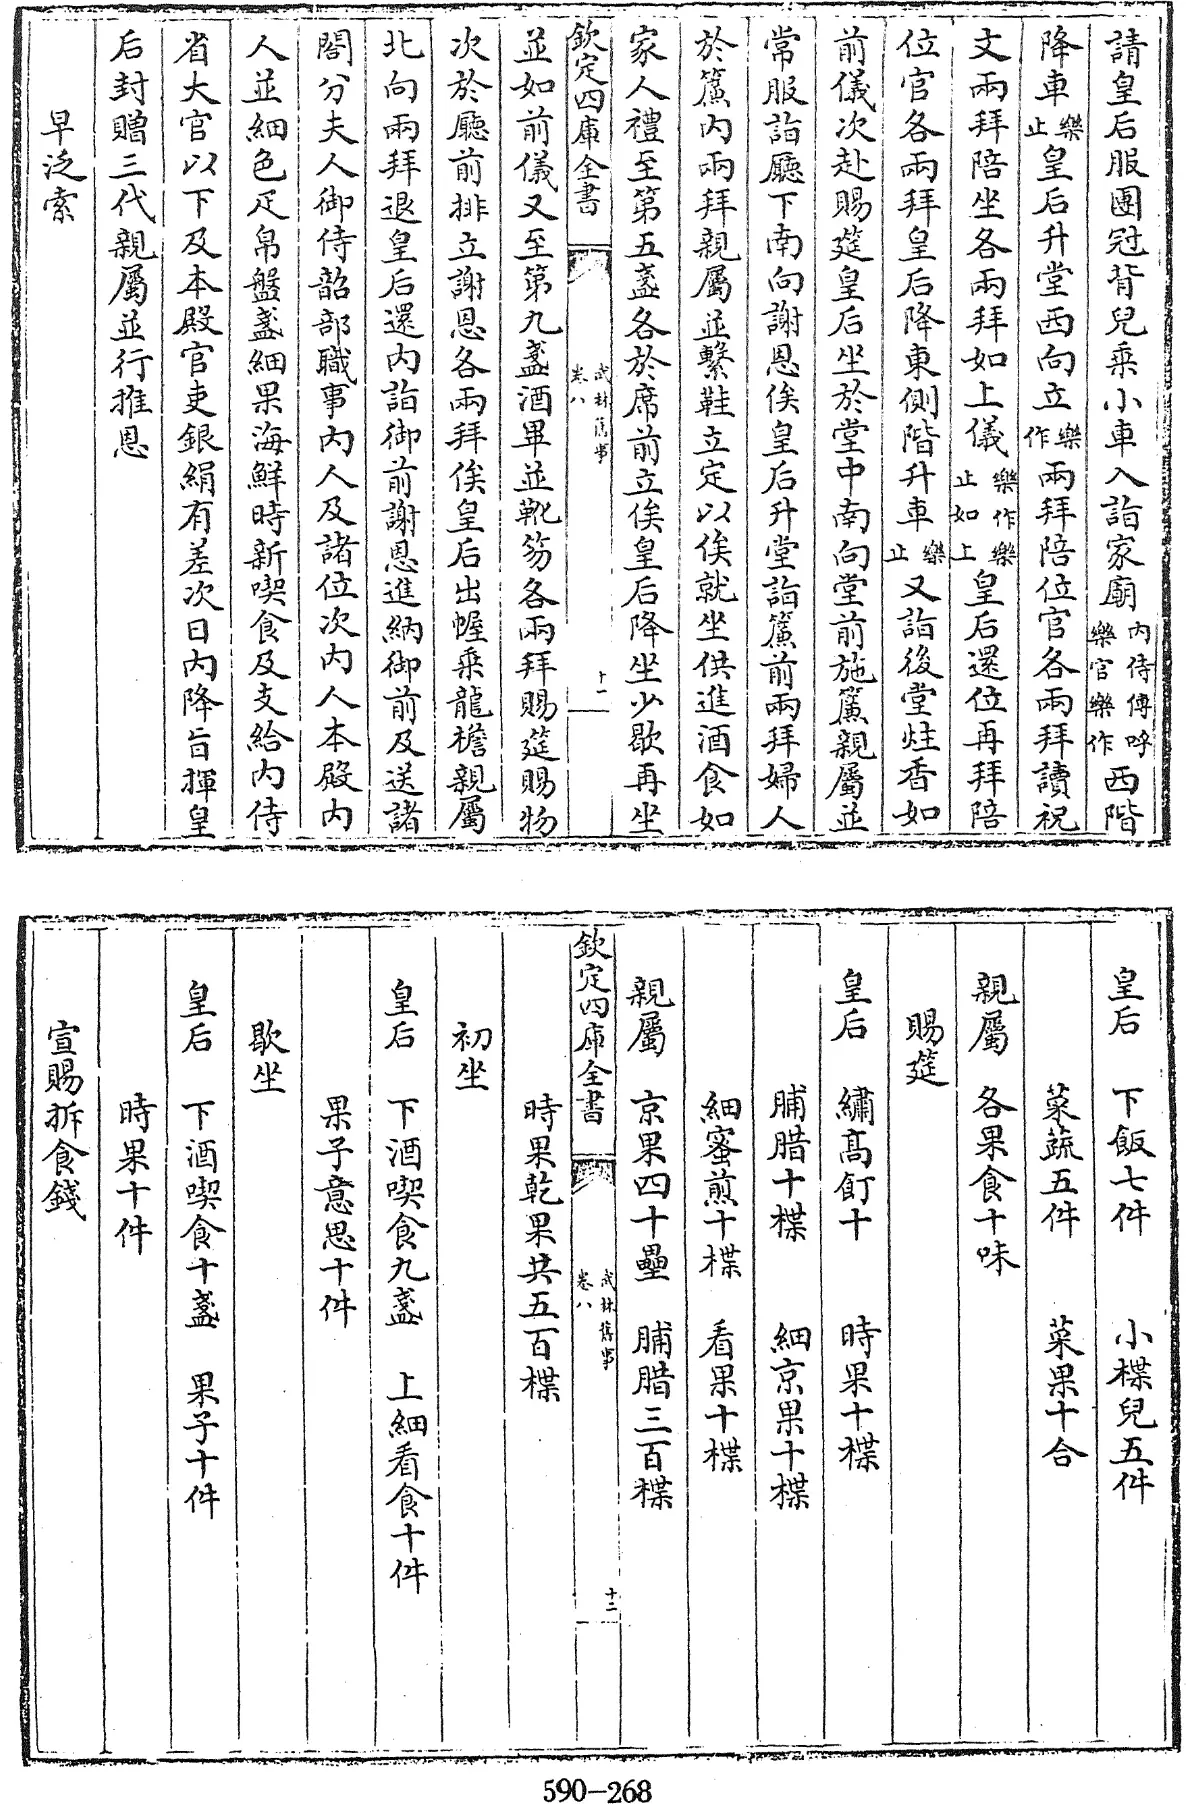 請皇后服團冠背兒乗小車入詣家廟内侍傳呼樂官樂作西階
降車樂止皇后升堂西向立樂作兩拜陪位官各兩拜讀祝
文兩拜陪坐各兩拜如上儀樂作樂止如上皇后還位再拜陪
位官各兩拜皇后降東側階升車樂止又詣後堂炷香如
前儀次赴賜筵皇后坐於堂中南向堂前施簾親屬並
常服詣廳下南向謝恩俟皇后升堂詣簾前兩拜婦人
於簾内兩拜親屬並繫鞋立定以俟就坐供進酒食如
家人禮至第五盞各於席前立俟皇后降坐少歇再坐
欽定四庫全書
武林舊事
卷八
十一
並如前儀又至第九盞酒畢並靴笏各兩拜賜筵賜物
次於廳前排立謝恩各兩拜俟皇后出幄乘龍檐親屬
北向兩拜退皇后還内詣御前謝恩進納御前及送諸
閤分夫人御侍韶部職事内人及諸位次内人本殿内
人並細色疋帛盤盞細果海鮮時新喫食及支給内侍
省大官以下及本殿官吏銀絹有差次日内降㫖揮皇
后封贈三代親屬並行推恩
早泛索
皇后 下飯七件 小楪兒五件
菜蔬五件 菜果十合
親屬 各果食十味
賜筵
皇后 繡髙飣十 時果十楪
脯腊十楪 細京果十楪
細蜜煎十楪 看果十楪
親屬 京果四十壘 脯腊三百楪
欽定四庫全書
武林舊事
卷八
十二
時果乾果共五百楪
初坐
皇后 下酒喫食九盞 上細看食十件
果子意思十件
歇坐
皇后 下酒喫食十盞 果子十件
時果十件
宣賜折食錢
590-268